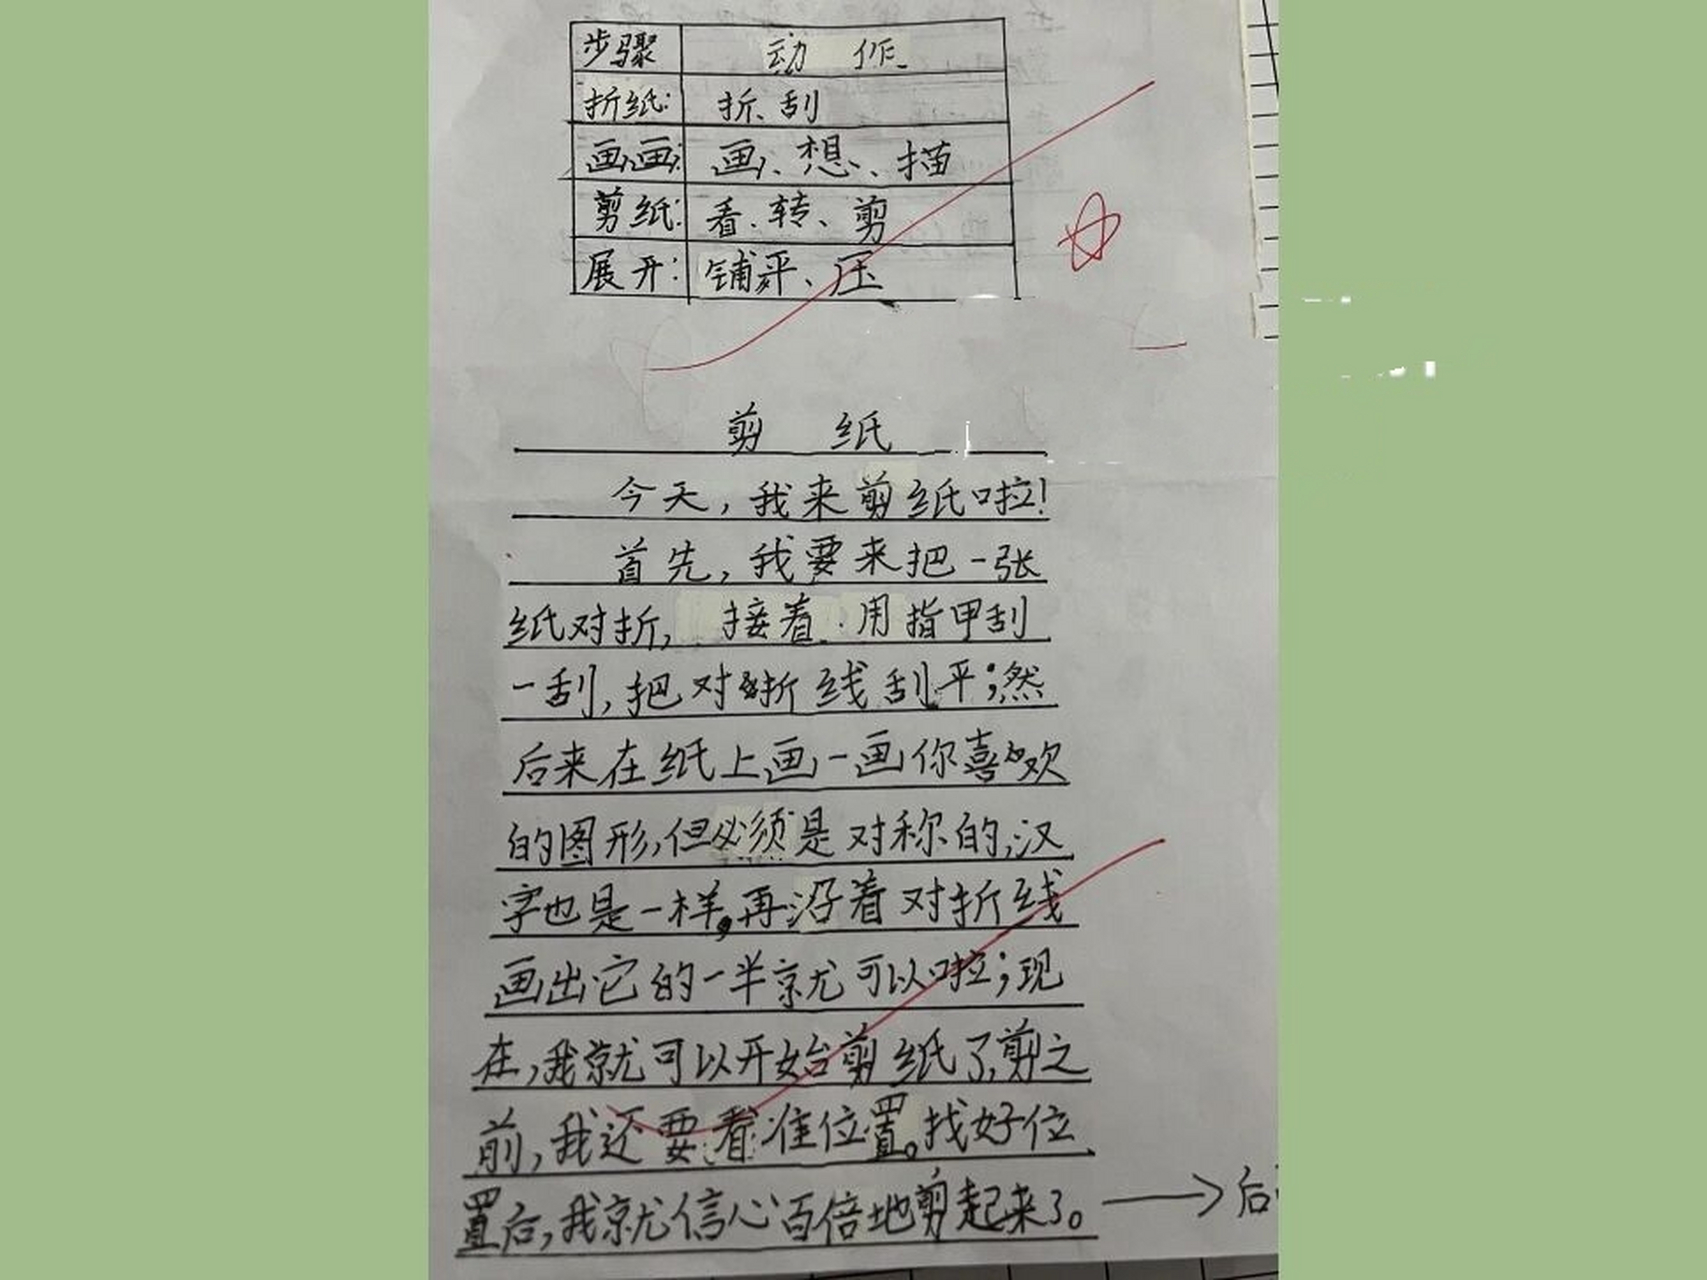 步骤 动作
折纸: 折、刮
画画: 画、想、描
剪纸: 看、转、剪
展开: 铺平、压
剪 纸
今天,我来剪纸啦!
首先,我要来把一张
纸对折, 接着 用指甲刮
一刮,把对折线刮平;然
后来在纸上画一画你喜欢
的图形,但必须是对称的,汉
字也是一样,再沿着对折线
画出它的一半就可以啦;现
在,我就可以开始剪纸了,剪之
前,我还要看准位置。找好位
置后,我就信心百倍地剪起来了。 → 后